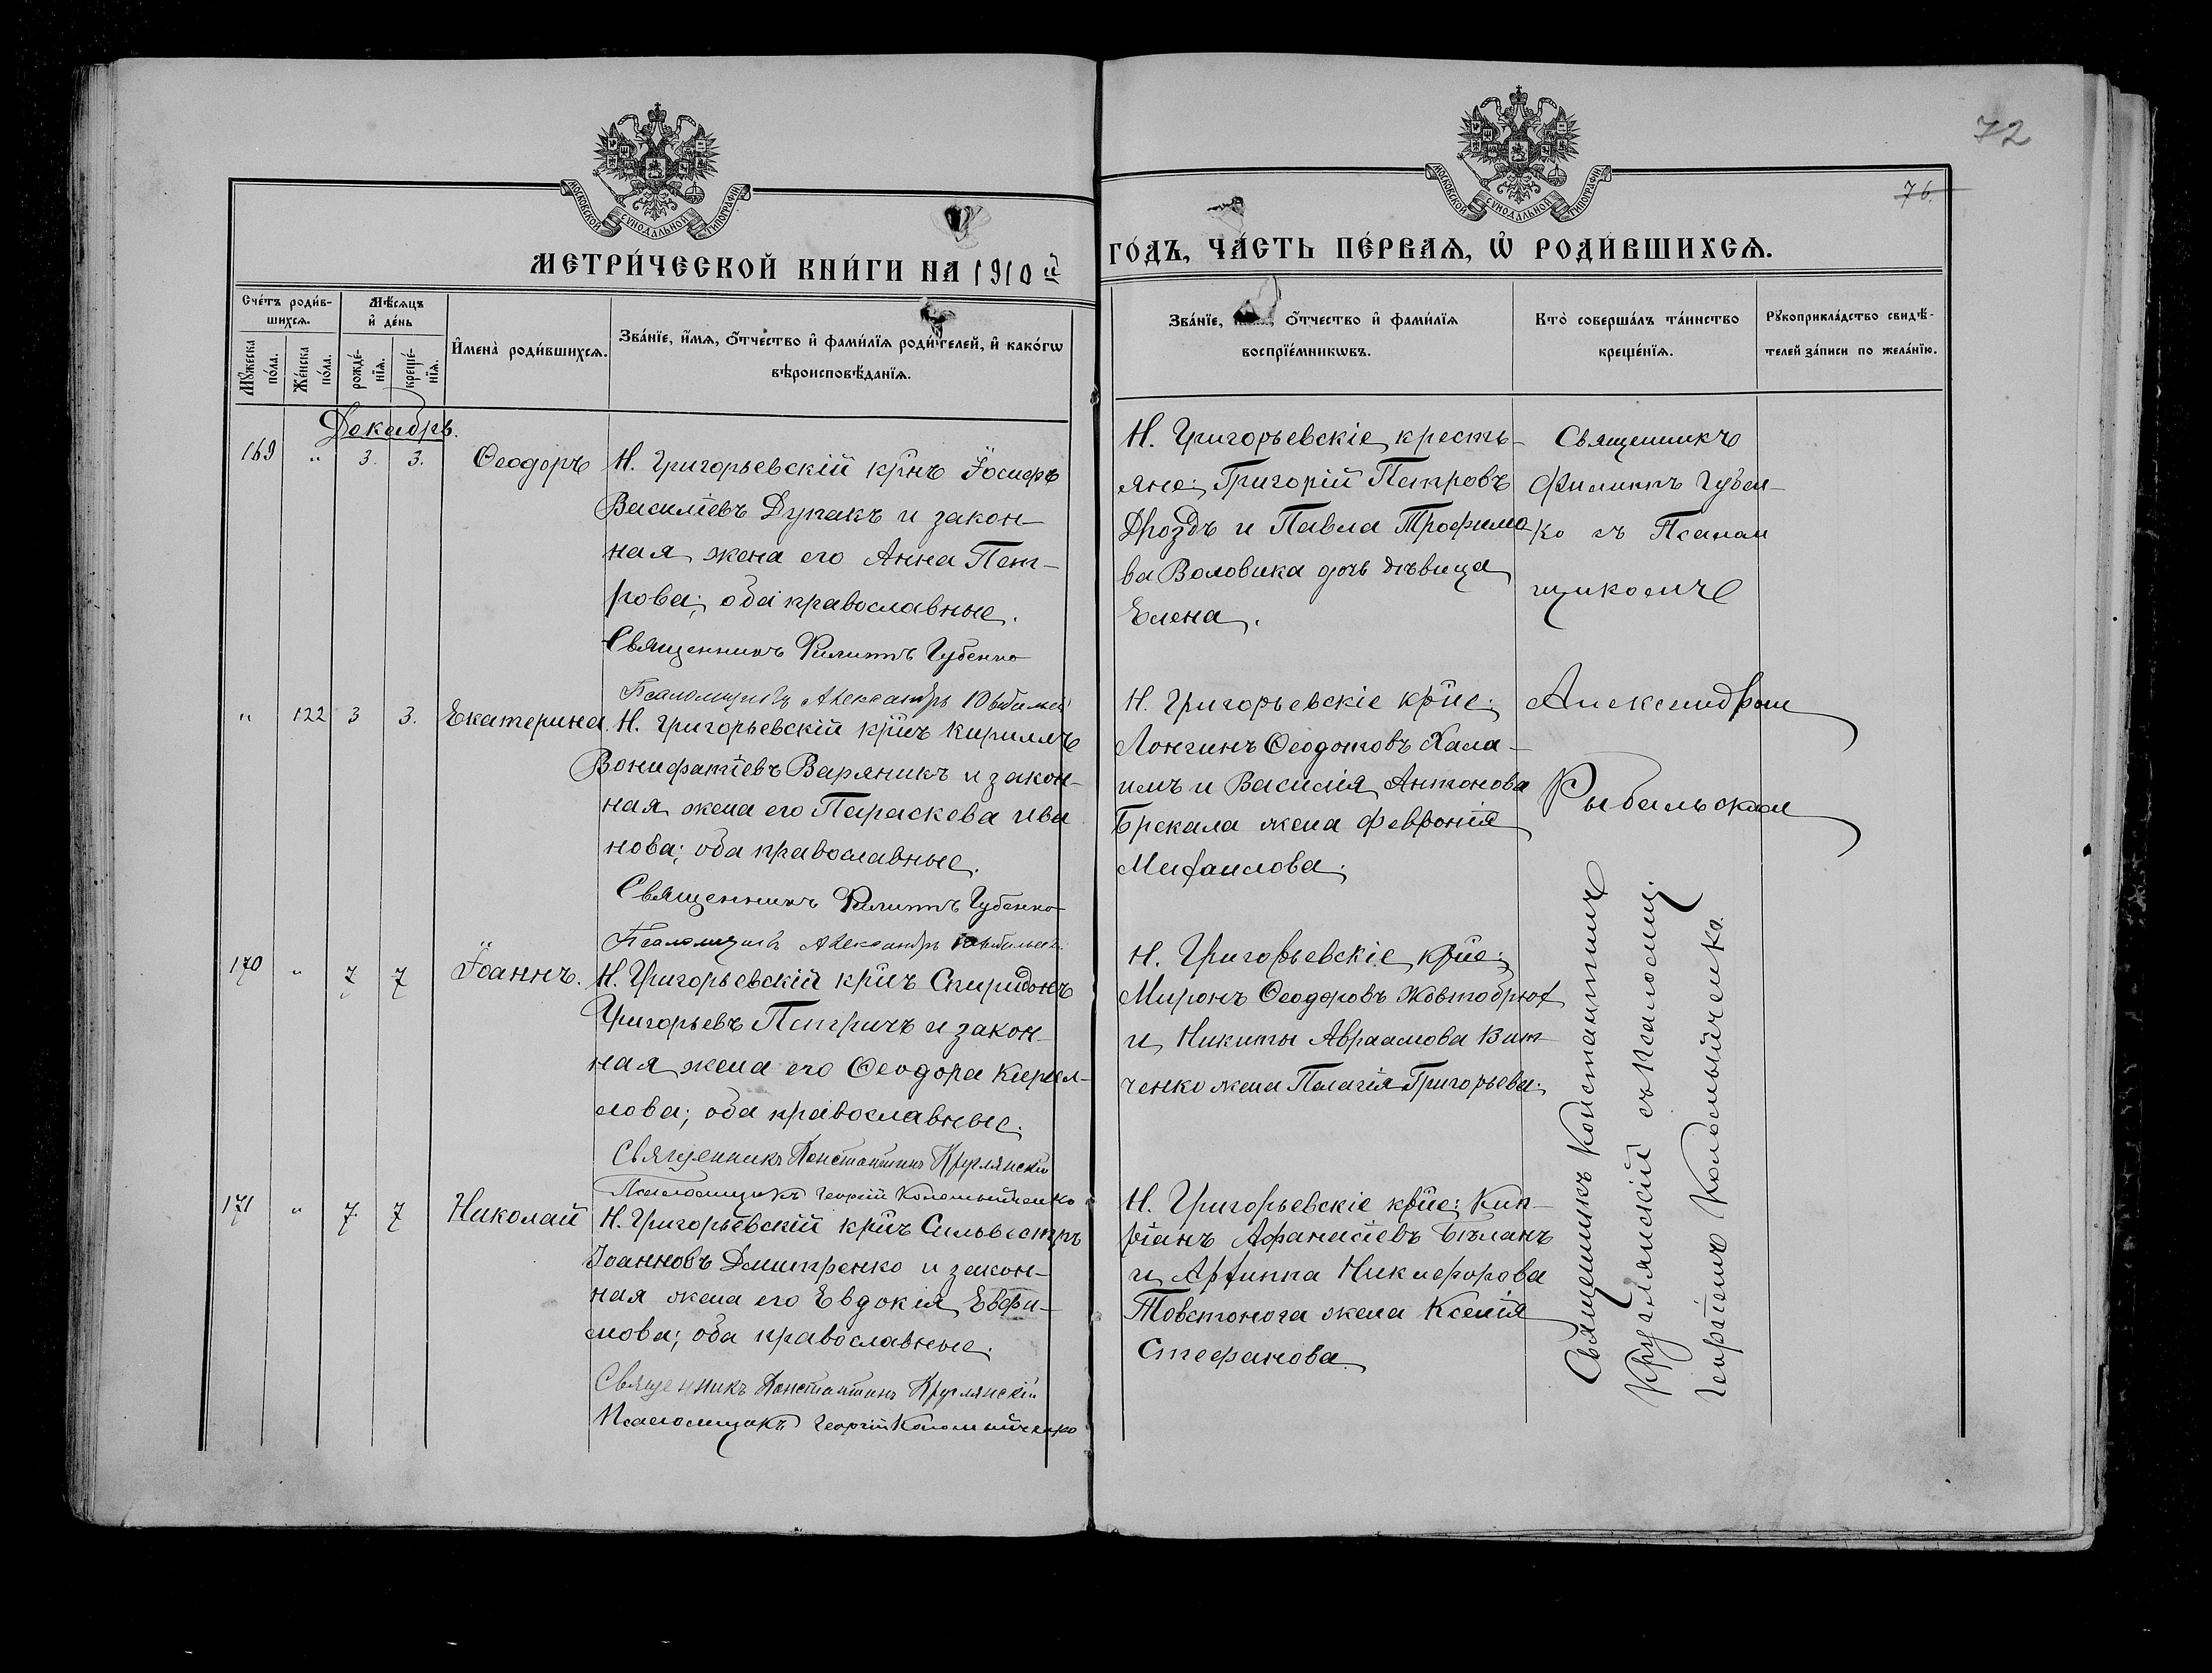 72
76.
МОСКОВСКОЙ СѴНОДАЛЬНОЙ ТИПОГРАФІИ
МОСКОВСКОЙ СѴНОДАЛЬНОЙ ТИПОГРАФІИ
МЕТРИ́ЧЕСКОЙ КНИ́ГИ НА 1910 й
ГО́ДЪ, ЧА́СТЬ ПЕ́РВАѦ, Ѡ РОДИ́ВШИХСѦ.
Сче́тъ роди́в-
шихсѧ.
Мꙋ́жеска
по́ла.
Же́нска
по́ла.
Мѣ́сѧцъ
и҆ де́нь
рожде́-
нїѧ.
креще́-
нїѧ.
И҆мена̀ роди́вшихсѧ.
Зва́нїе, и҆́мѧ, ѻ҆́тчество и҆ фами́лїѧ роди́телей, и҆ како́гѡ
вѣроисповѣ́данїѧ.
Зва́нїе, ѻ҆́тчество и҆ фами́лїѧ
воспрїе́мникѡвъ.
Кто̀ соверша́лъ та́инство
креще́нїѧ.
Рꙋкоприкла́дство свидѣ́-
телей за́писи по жела́нїю.
Декабрь.
169 " 3. 3. Ѳеодоръ
Н. Григорьевскій крнъ Іосифъ
Василіевъ Дупакъ и закон-
ная жена его Анна Пет-
рова; оба православные.
Священникъ Филиппъ Губенко
Псаломщикъ Александръ
Н. Григорьевскіе кресть-
яне; Григорій Петровъ
Дроздъ и Павла Трофимо
ва Воловика дочь дѣвица
Елена.
Священникъ
Филиппъ Губен-
ко съ Псалом
щикомъ
Александром
Рыбальским
" 122 3 3. Екатерина.
Н. Григорьевскій крнъ Кириллъ
Вонифатіевъ Варяникъ и закон-
ная жена его Параскева Ива
нова; оба православные.
Священникъ Филиппъ Губенко
Псаломщикъ Александръ
Н. Григорьевскіе крне;
Лонгинъ Ѳеодотовъ Хала-
имъ и Василія Антонова
Брекала жена Февронія
Михаилова.
170 " 7 7 Іоаннъ.
Н. Григорьевскій крнъ Спиридонъ
Григорьевъ Петричъ и закон-
ная жена его Ѳеодора Кирил-
лова; оба православные.
Священникъ Константинъ Круглянскій
Псаломщикъ Георгій Коломыйченко
Н. Григорьевскіе крне;
Миронъ Ѳеодоровъ Жовтобрюх
и Никиты Авраамова Вит-
ченко жена Пелагія Григорьева.
Священникъ Константинъ
Круглянскій съ Псаломщ.
Георгіемъ Коломыйченко.
171 " 7. 7 Николай
Н. Григорьевскій крнъ Сильвестръ
Іоанновъ Дмитренко и закон-
ная жена его Евдокія Евфи-
мова; оба православные.
Священникъ Константинъ Круглянскій
Псаломщикъ Георгій Коломыйченко
Н. Григорьевскіе крне; Кип-
ріанъ Афанасіевъ Бѣланъ
и Архиппа Никифорова
Товстонога жена Ксенія
Стефанова.